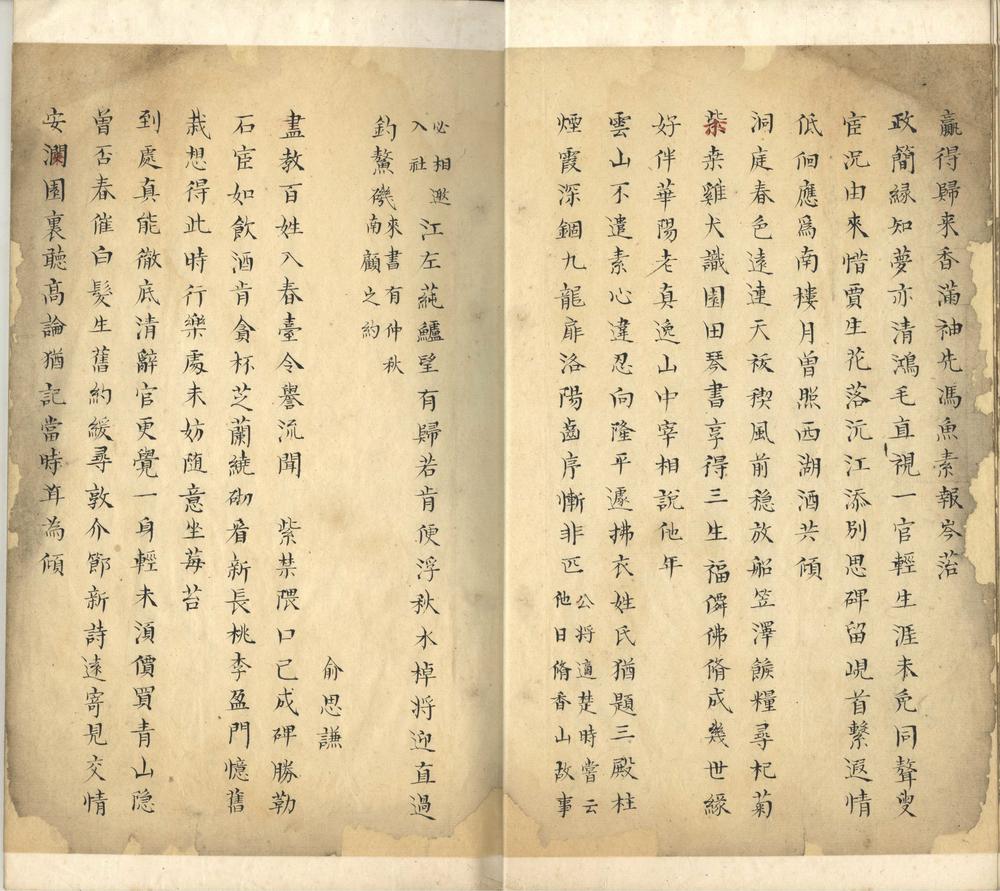 贏得歸來香滿袖先馮魚素報岑菭
政簡緣知夢亦清鴻毛直視一官輕生涯未免同聲叟
宦況由來惜賈生花落沅江添別思碑留峴首繫遐情
低佪應爲南樓月曾照西湖酒共傾
洞庭春色遠連天祓禊風前稳放船笠澤餱糧尋杞菊
柴桒雞犬識園田琴書享得三生福佛脩成幾世緣
好伴華陽老真逸山中宰相說他年
雲山不遣素心違忍向隆平遽拂衣姓氏猶題三殿柱
煙霞深錮九龍扉洛陽齒序慚非匹
公將適楚時嘗云
他日脩香山故事
必相邀
入社
江左蒓鱸望有歸若肯便浮秋水棹將迎直過
釣鰲磯
來書有仲秋
南顧之約
俞思謙
盡教百姓入春臺令譽流聞 紫禁隈口已成碑勝勒
石宦如飲酒肯貪杯芝蘭繞砌看新長桃李盈門憶舊
栽想得此時行樂處未妨随意坐莓苔
到處真能徹底清辭官更覺一身輕未湏價買青山隐
曾否春催白髮生舊約緩尋敦介節新詩遠寄見交情
安瀾園裏聽高論猶記當時耳為傾